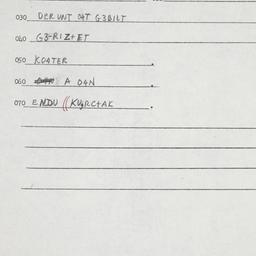 030 DER UNT O4T G3BILT
060 G3-RIZTET
050 KOATER
060 A D4N
070 ENDU